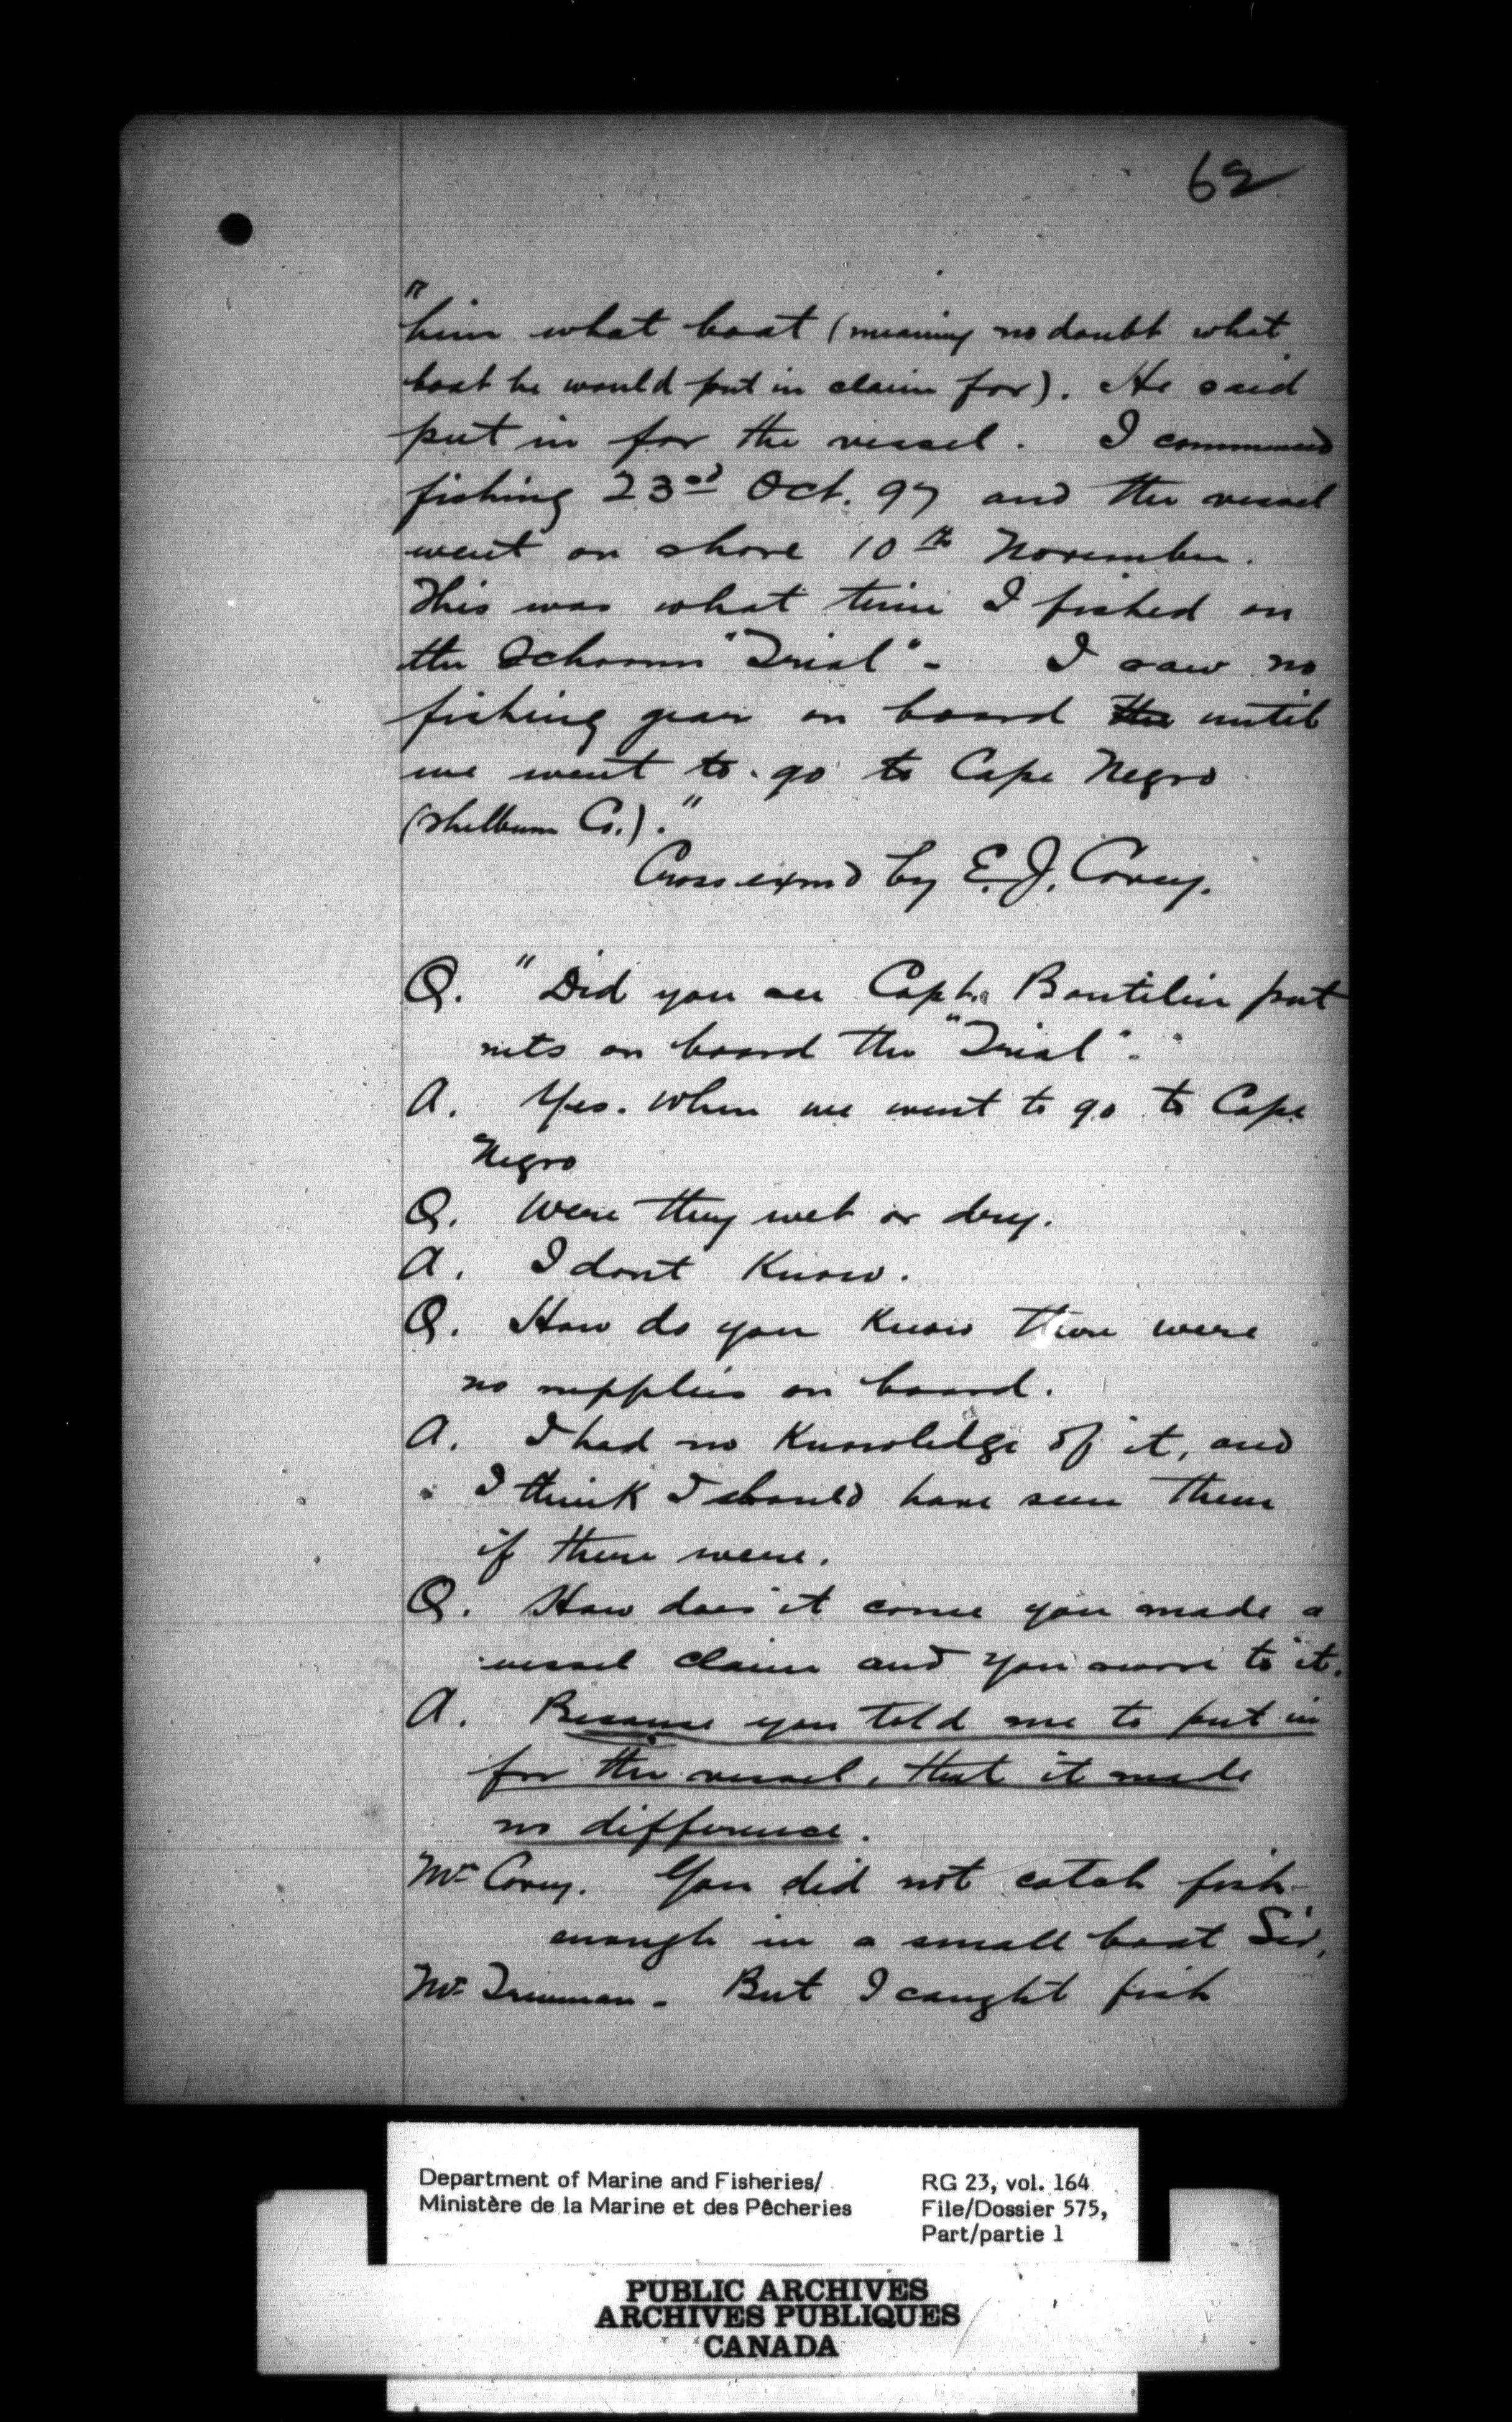 62
"him what boat (meaning no doubt what
boat he would put in claim for). He said
put in for the vessel. I commenced
fishing 23rd Oct. 97 and the vessel
went on shore 10th November.
This was what time I fished on
the Schooner "Trial"- I saw no
fishing gear on board the until
we went to go to Cape Negro
(Shelburne Co.)."
Cross exmd by E. J. Covey.
Q. "Did you see Capt. Boutilin put
nets on board the "Trial".
A. Yes. When we went to go to Cape
Negro
Q. Were they wet or dry.
A. I dont Know.
Q. How do you Know there were
no supplies on board.
A. I had no Knowledge of it, and
I think I should have seen them
if there were.
Q. How does it come you made a
vessel claim and you swore to it.
A. Because you told me to put in
for the vessel, that it made
no difference.
Mr Covey. You did not catch fish
enough in a small boat Sir.
Mr Truman - But I caught fish
Department of Marine and Fisheries/
Ministère de la Marine et des Pêcheries
RG 23, vol. 164
File/Dossier 575,
Part/partie 1
PUBLIC ARCHIVES
ARCHIVES PUBLIQUES
CANADA